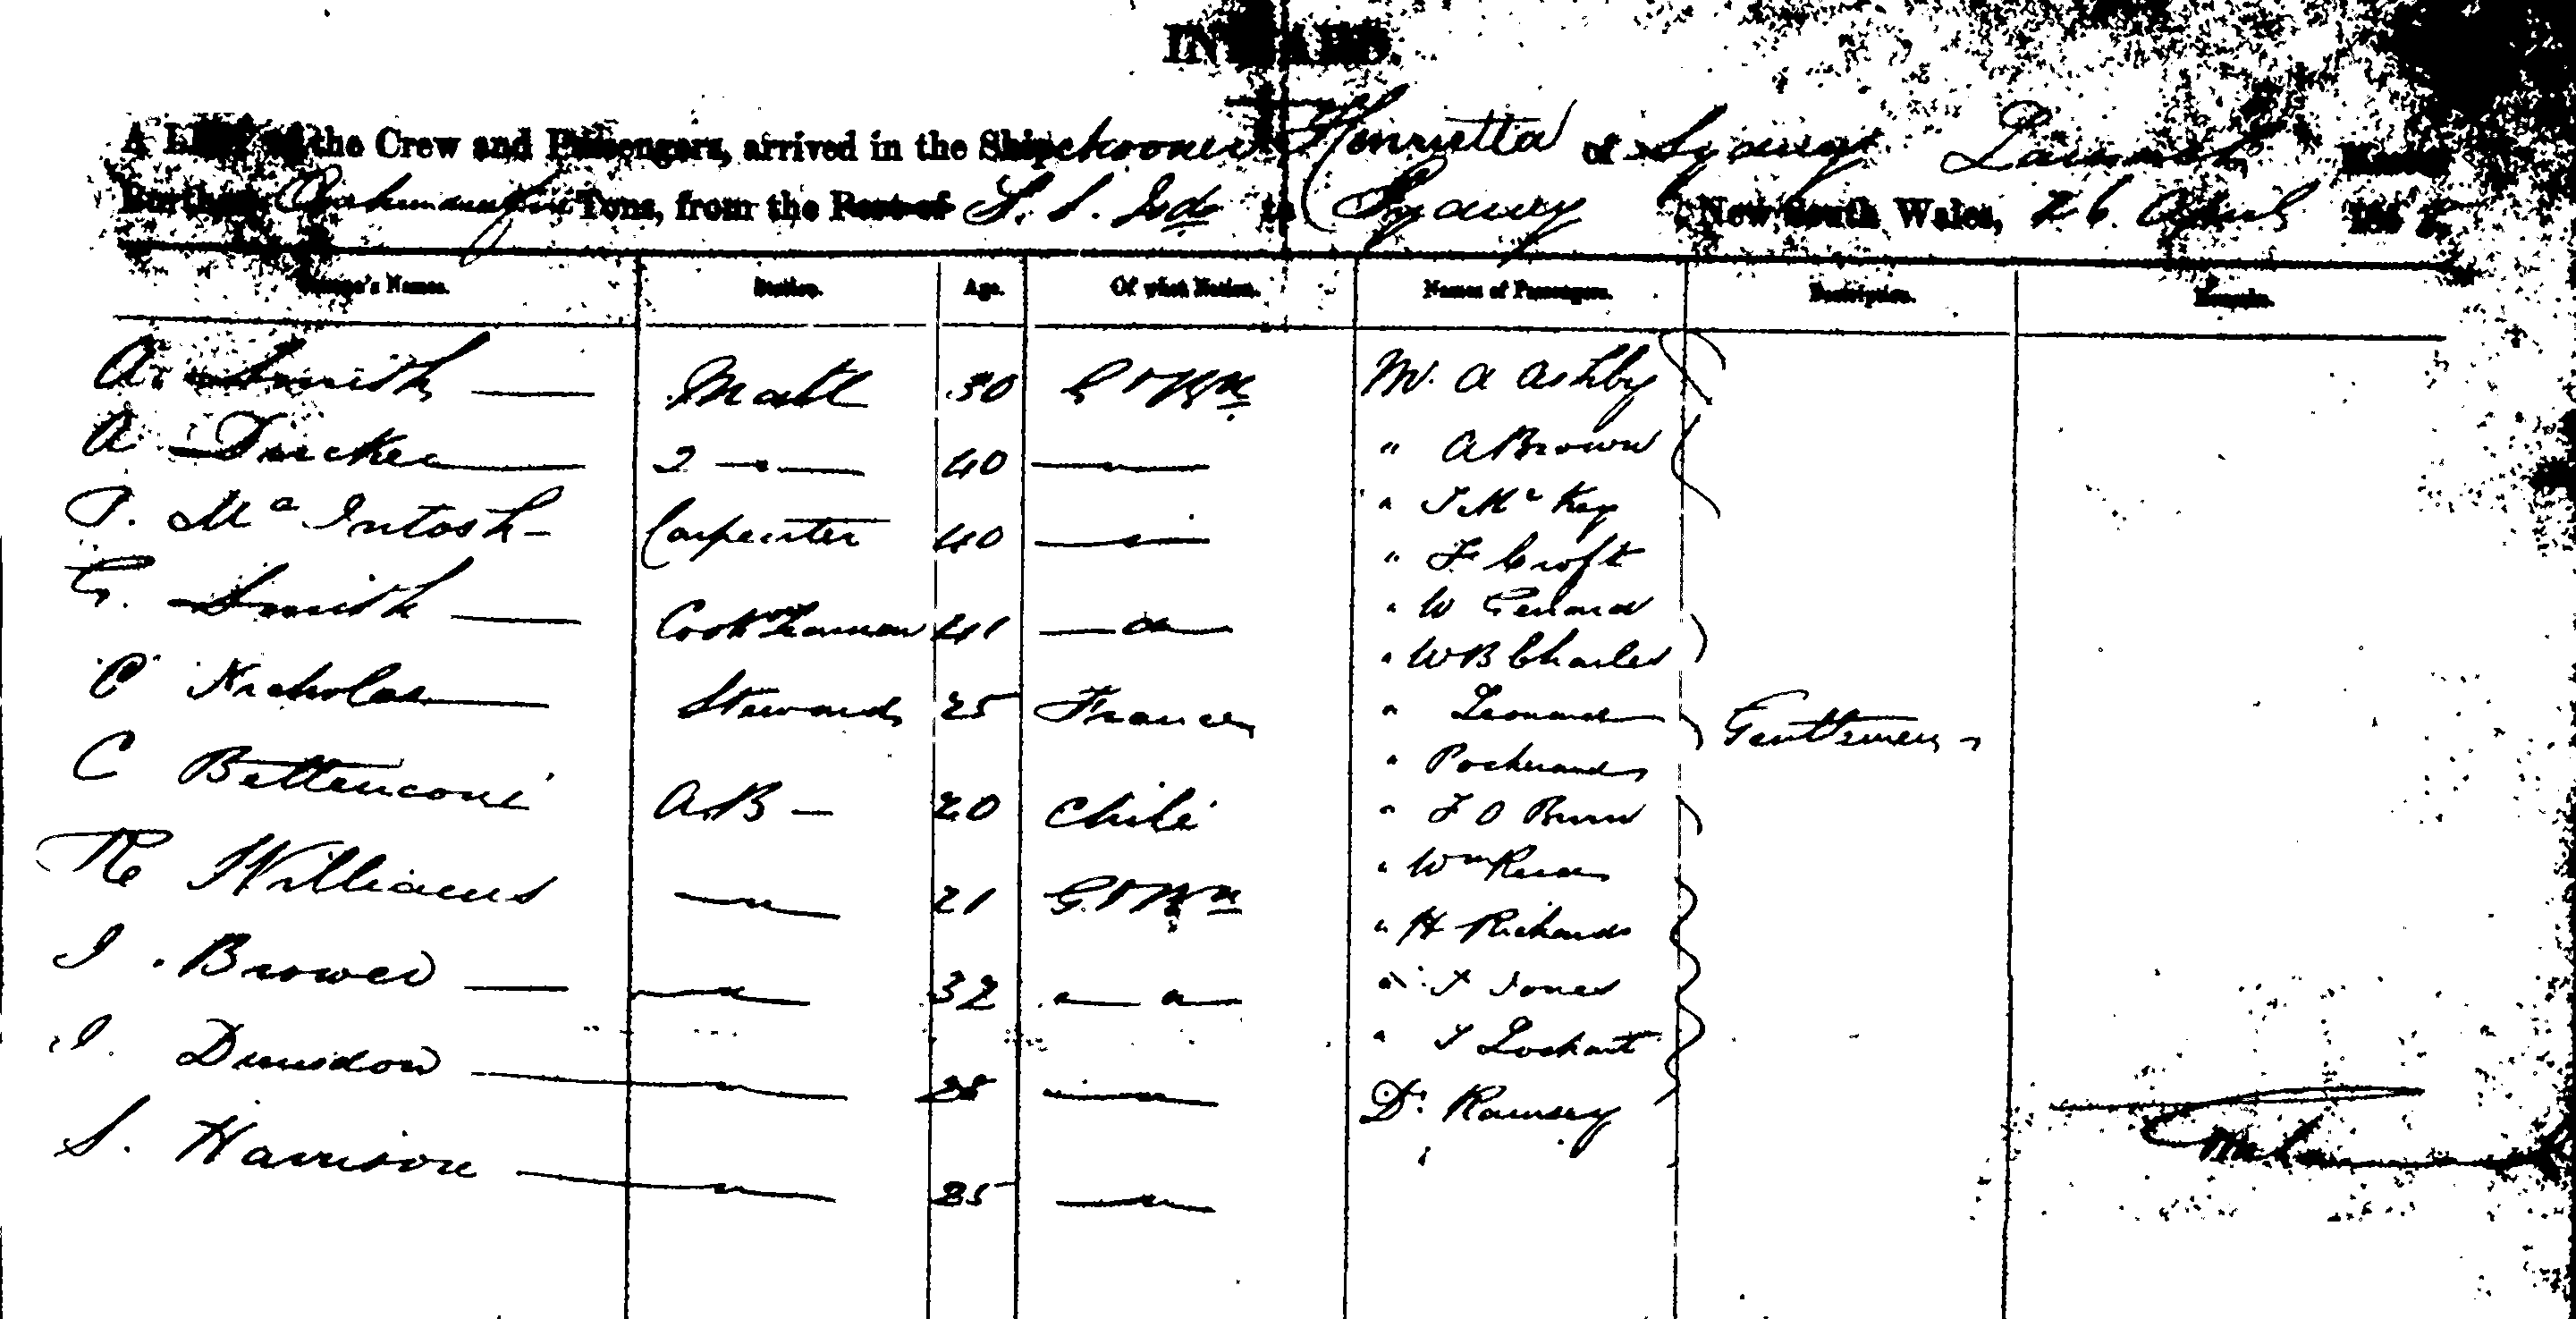 INWARD.
A List of the Crew and Passengers, arrived in the Ship Schooner Henrietta of Sydney Master
Burthen Tons, from the Port of S. S. Isds to Sydney New South Wales, 26 April 185
Names. Station. Age. Of what Nation. Names of Passengers. Description. Remarks.
A. Smith — Mate 30 Gt Bn Mr. A Ashby
A 2 — " — 40 — " — " A Brown
P. Mc Intosh - Carpenter 40 — " — " J Mc Kay
" F Croft
G. Smith — Cook 41 — " — " W
" W B Charles
C Nicholas Steward 25 France " Leonard Gentlemen
"
C AB — 20 Chili " F O
" Wm
R Williams — " — 21 Gt Bn " H Richards
J. Brower — " — 32 " — " — " J Jones
J. Dunsdon — " — 28 — " — " J Lockart
Dr. Ramsey
S. Harrison — " — 25 — " —